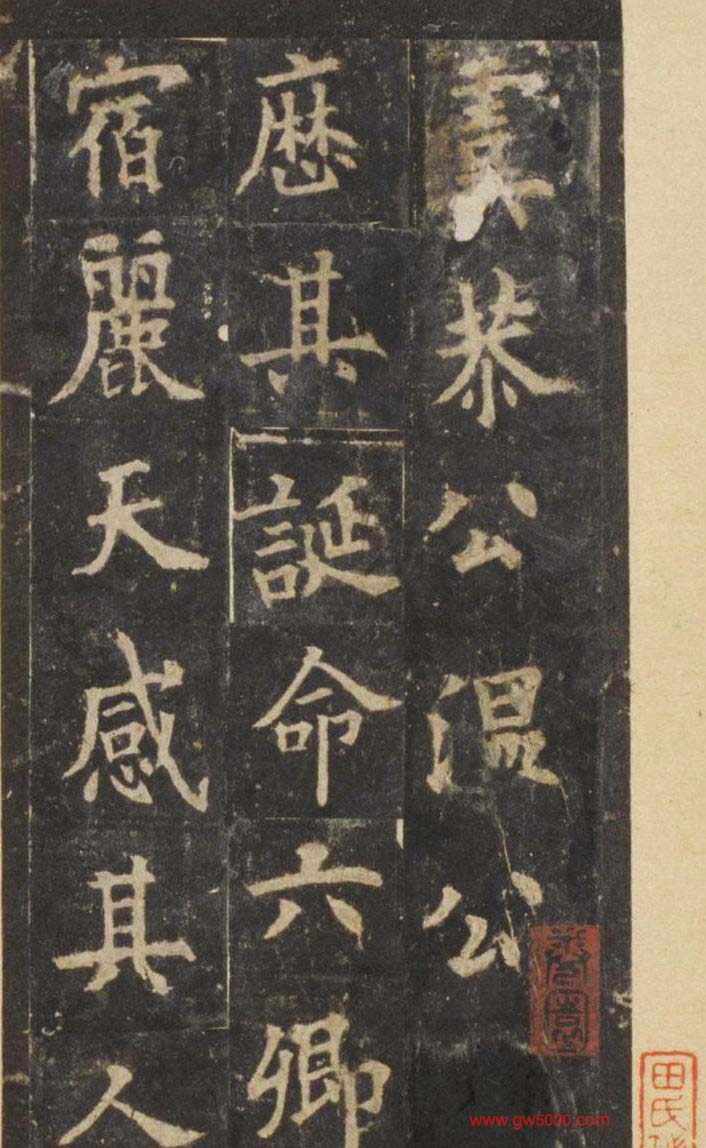 虞恭公温公
歷其誕命六卿
宿麗天感其人
田氏
www.gw5000.com